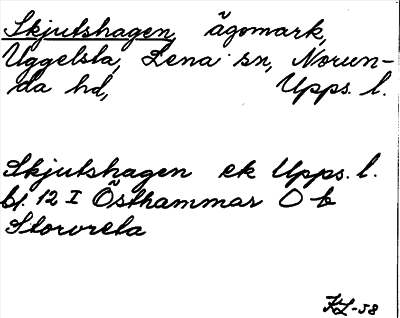 Skjutshagen, ägomark,
Uggelsta, Lena sn, Norun-
da hd, Upps. l.
Skjutshagen ek Upps. l.
bl. 12 I Östhammar O b
Storvreta
KL-58